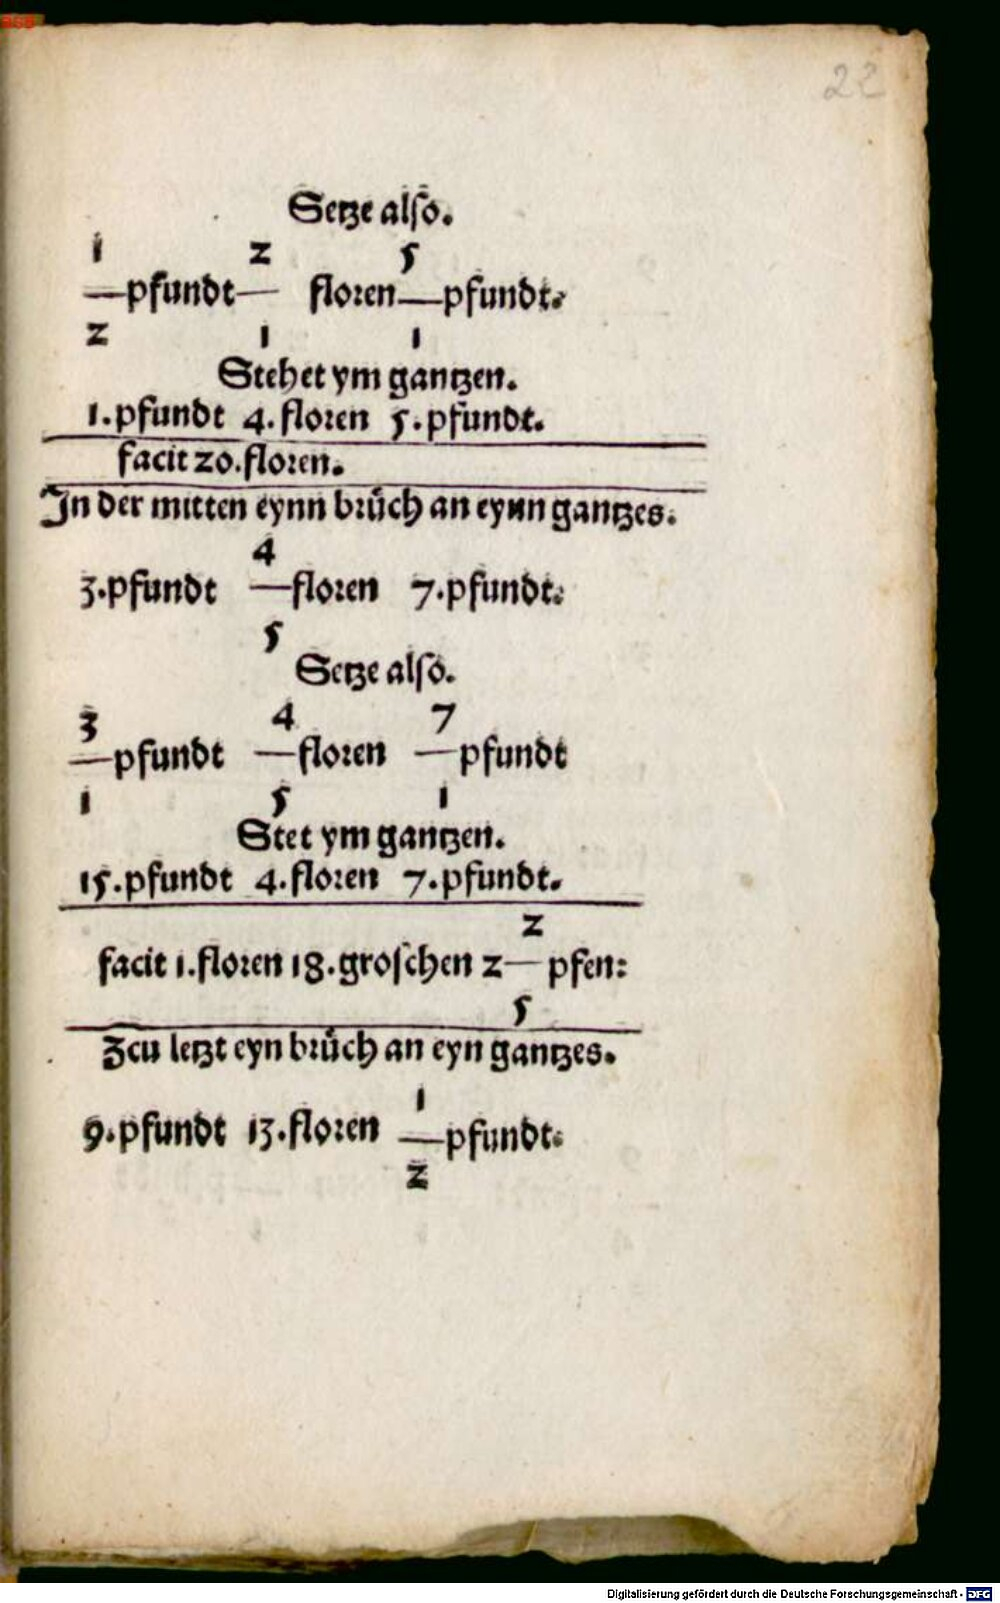 BSB
22
Setze also.
1 2 5
—pfundt— floren—pfundt.
2 1 1
Stehet ym gantzen.
1.pfundt 4.floren 5.pfundt.
facit 20.floren.
In der mitten eynn brüch an eynn gantzes.
4
3.pfundt —floren 7.pfundt.
5
Setze also.
3 4 7
—pfundt —floren —pfundt
1 5 1
Stet ym gantzen.
15.pfundt 4.floren 7.pfundt.
2
facit 1.floren 18.groschen 2— pfen:
5
Zcu letzt eyn brüch an eyn gantzes.
1
9.pfundt 13.floren —pfundt.
2
Digitalisierung gefördert durch die Deutsche Forschungsgemeinschaft - DFG